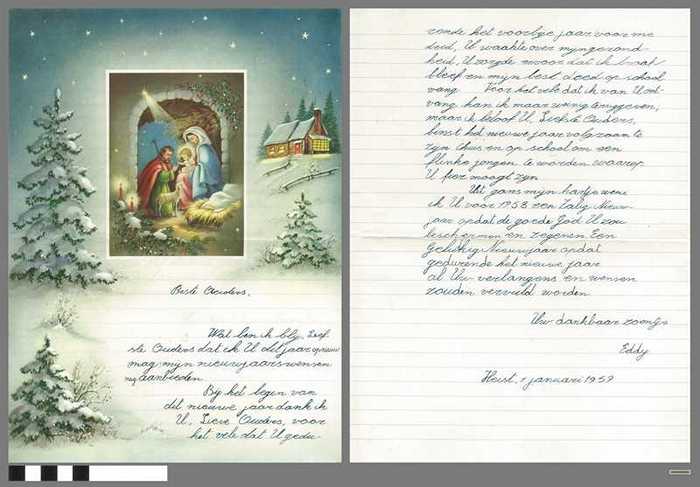 Beste Ouders,
Wat ben ik blij, Lief
ste Ouders dat ik U dit jaar opnieuw
mag mijn nieuwjaarswensen
mag aanbieden
Bij het begin van
dit nieuwe jaar dank ik
U, Lieve Ouders, voor
het vele dat U gedu-
rende het voorbije jaar voor me
deed. U waakte over mijn gezond
heid. U zorgde ervoor dat ik braaf
bleef en mijn best deed op school
Voor het vele dat ik van U ont-
vang kan ik maar weinig teruggeven,
maar ik beloof U, Liefste Ouders,
binst het nieuwe jaar volgzaam te
zijn thuis en op school om een
flinke jongen te worden waarop
U fier moogt zijn
Uit gans mijn hartje wens
ik U voor 1958 een Zalig Nieuw
jaar opdat de goede God U zou
beschermen en zegenen Een
Gelukkig Nieuwjaar opdat
gedurende het nieuwe jaar
al Uw verlangens en wensen
zouden vervuld worden
Uw dankbaar zoontje
Eddy
Heist, 1 januari 1959